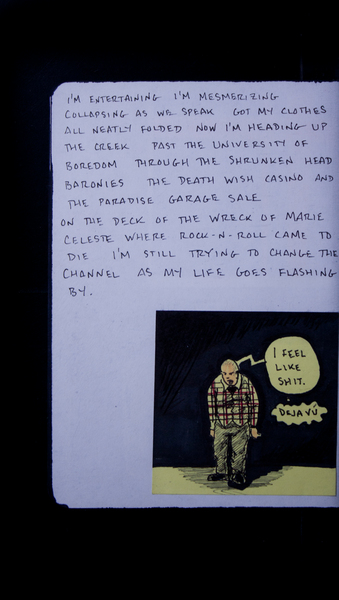 I'M ENTERTAINING I'M MESMERIZING
COLLAPSING AS WE SPEAK GOT MY CLOTHES
ALL NEATLY FOLDED NOW I'M HEADING UP
THE CREEK PAST THE UNIVERSITY OF
BOREDOM THROUGH THE SHRUNKEN HEAD
BARONIES THE DEATH WISH CASINO AND
THE PARADISE GARAGE SALE
ON THE DECK OF THE WRECK OF MARIE
CELESTE WHERE ROCK-N-ROLL CAME TO
DIE I'M STILL TRYING TO CHANGE THE
CHANNEL AS MY LIFE GOES FLASHING
BY.
I FEEL
LIKE
SHIT.
DEJA VÚ